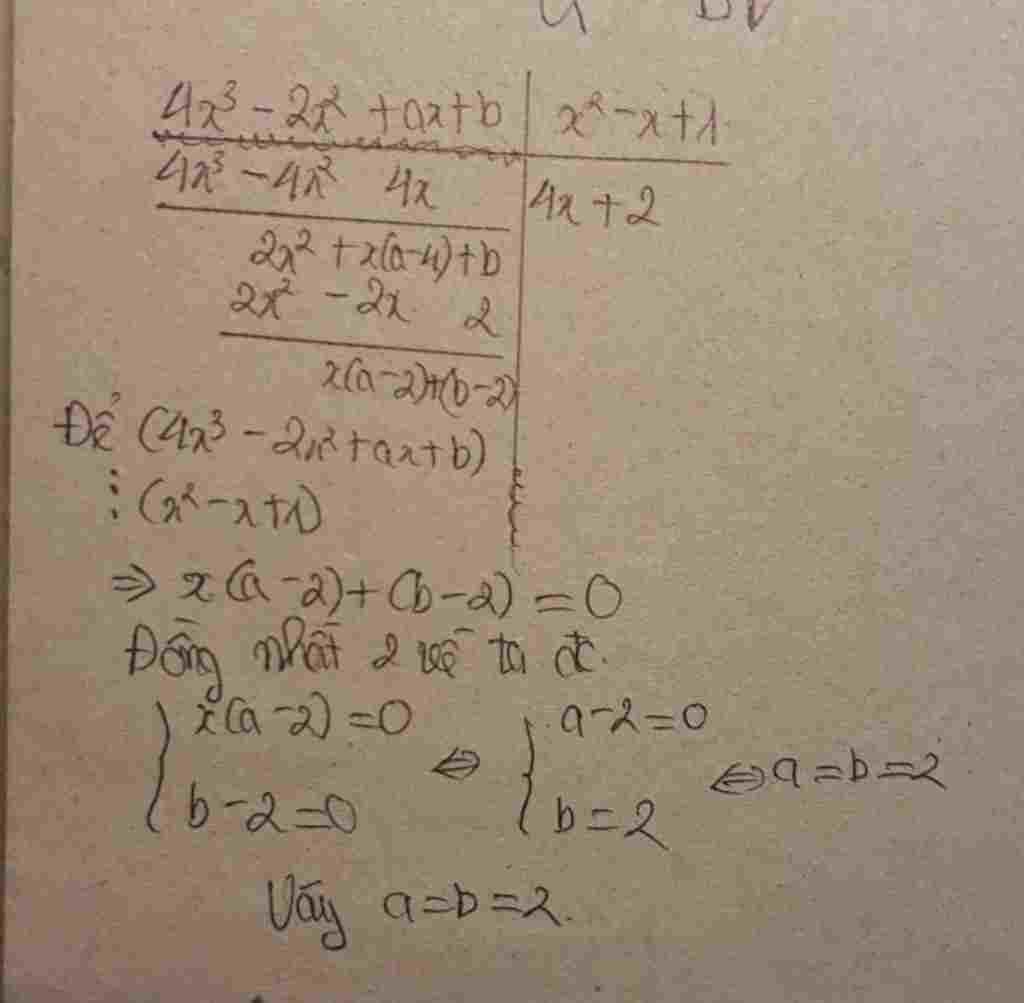 4x³ - 2x² + ax + b | x² - x + 1
4x³ - 4x² 4x | 4x + 2
2x² + x(a-4) + b
2x² - 2x 2
x(a-2)+(b-2)
Để (4x³ - 2x² + ax + b)
⋮ (x² - x + 1)
⇒ x(a-2) + (b-2) = 0
Đồng nhất 2 vế ta đc.
{ x(a-2) = 0 ⇔ { a-2=0 ⇔ a=b=2
b-2=0 b=2
Vậy a=b=2.